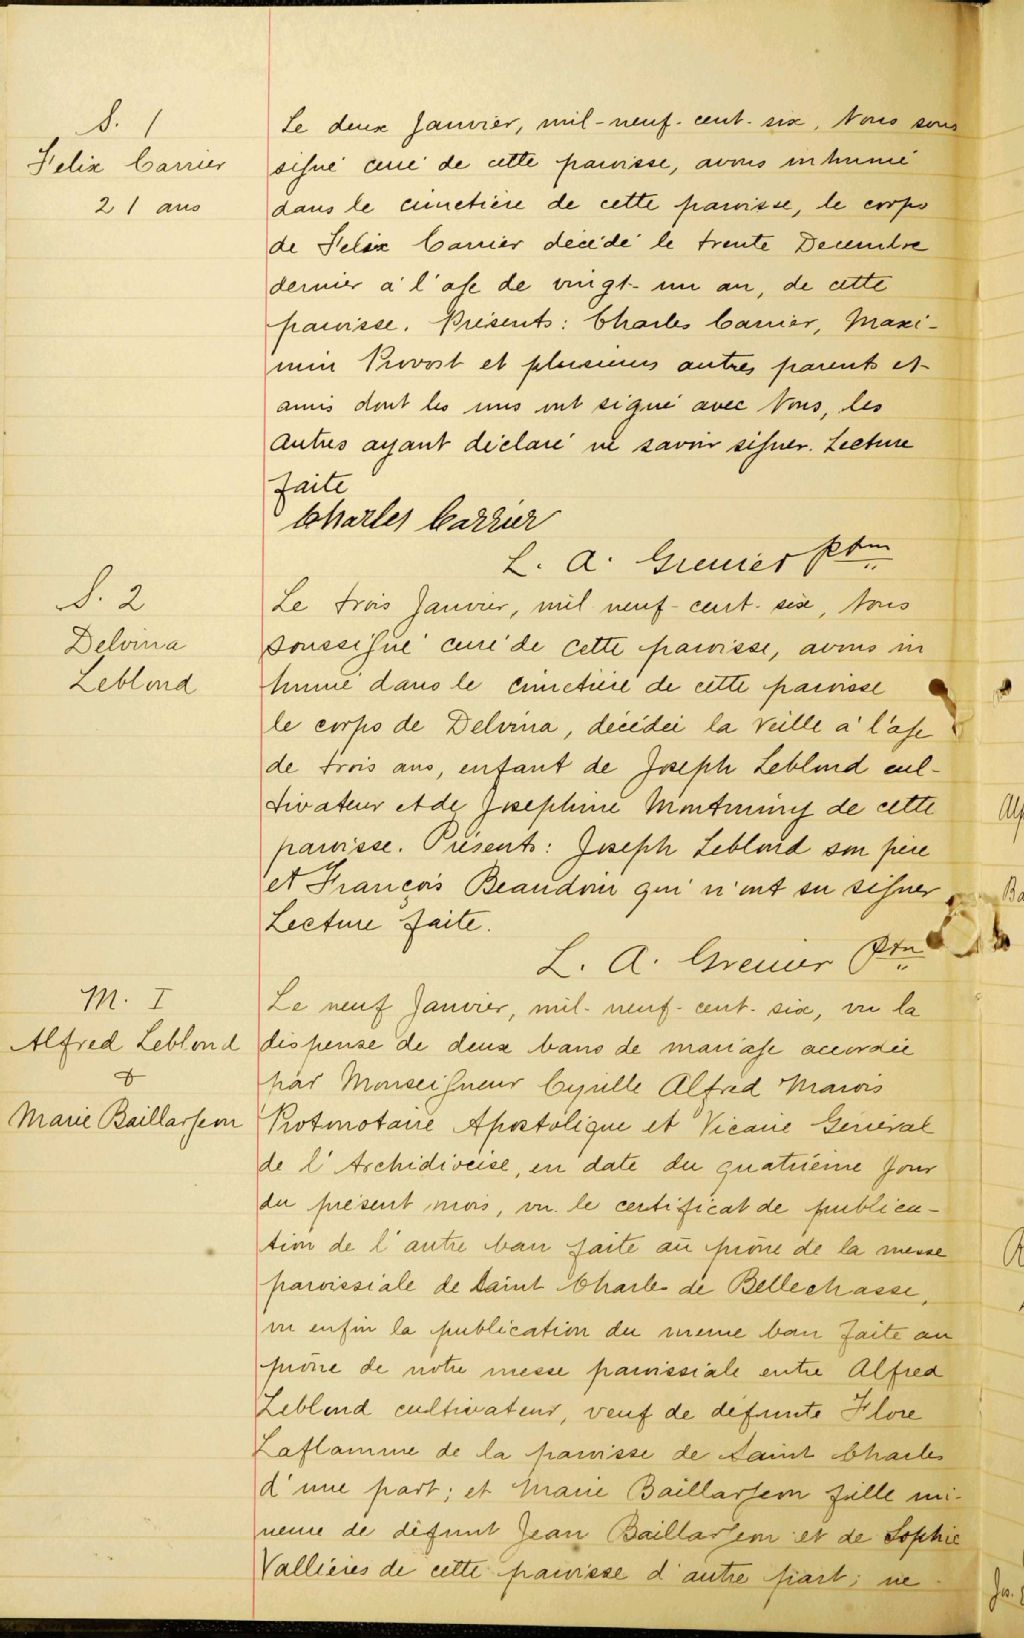 S. 1
Felix Carrier
21 ans
Le deux Janvier, mil-neuf-cent-six, Nous sous
signé curé de cette paroisse, avons inhumé
dans le cimetière de cette paroisse, le corps
de Felix Carrier décédé le trente Decembre
dernier à l'age de vingt-un an, de cette
paroisse. Présents: Charles Carrier, Maxi-
min Provost et plusieurs autres parents et
amis dont les uns ont signé avec Nous, les
autres ayant déclaré ne savoir signer. Lecture
faite
Charles Carrier
L. A. Grenier Ptre
S. 2
Delvina
Leblond
Le trois Janvier, mil neuf-cent-six, Nous
soussigné curé de cette paroisse, avons in
humé dans le cimetière de cette paroisse
le corps de Delvina, décédée la veille à l'age
de trois ans, enfant de Joseph Leblond cul-
tivateur et de Josephine Montminy de cette
paroisse. Présents: Joseph Leblond son père
et François Beaudoin qui n'ont su signer
Lecture faite.
L. A. Grenier Ptre
M. I
Alfred Leblond
&
Marie Baillargeon
Le neuf Janvier, mil-neuf-cent-six, vu la
dispense de deux bans de mariage accordée
par Monseigneur Cyrille Alfred Marois
Protonotaire Apostolique et Vicaire Général
de l'Archidiocèse, en date du quatrième jour
du présent mois, vu le certificat de publica-
tion de l'autre ban faite au prône de la messe
paroissiale de Saint Charles de Bellechasse,
vu enfin la publication du meme ban faite au
prône de notre messe paroissiale entre Alfred
Leblond cultivateur, veuf de défunte Flore
Laflamme de la paroisse de Saint Charles
d'une part; et Marie Baillargeon fille mi-
neure de défunt Jean Baillargeon et de Sophie
Vallières de cette paroisse d'autre part; ne